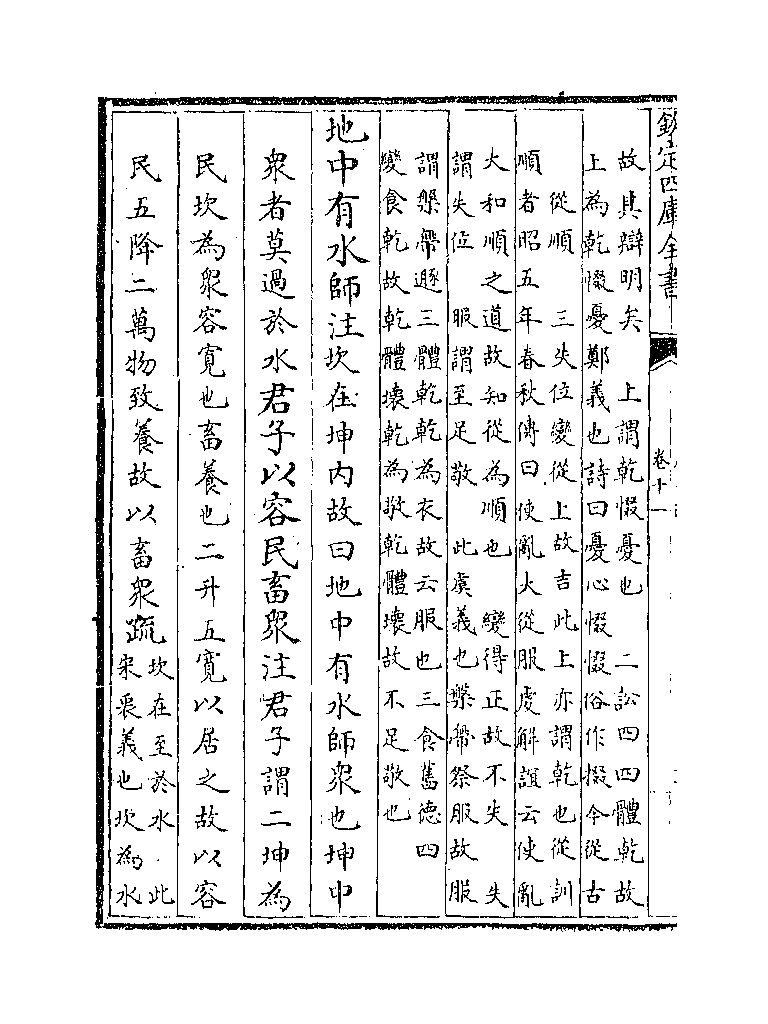 欽定四庫全書
卷十一
故其辯明矣　上謂乾惙憂也　二訟四四體乾故
上為乾惙憂鄭義也詩曰憂心惙惙俗作掇今從古
從順　三失位變從上故吉此上亦謂乾也從訓
順者昭五年春秋傳曰使亂大從服虔解誼云使亂
大和順之道故知從為順也　變得正故不失　失
謂失位　服謂至足敬　此虞義也鞶帶祭服故服
謂鞶帶遯三體乾乾為衣故云服也三食舊德四
變食乾故乾體壊乾為敬乾體壊故不足敬也
地中有水師注坎在坤内故曰地中有水師衆也坤中
衆者莫過於水君子以容民畜衆注君子謂二坤為
民坎為衆容寛也畜養也二升五寛以居之故以容
民五降二萬物致養故以畜衆疏
坎在至於水　此
宋衷義也坎為水